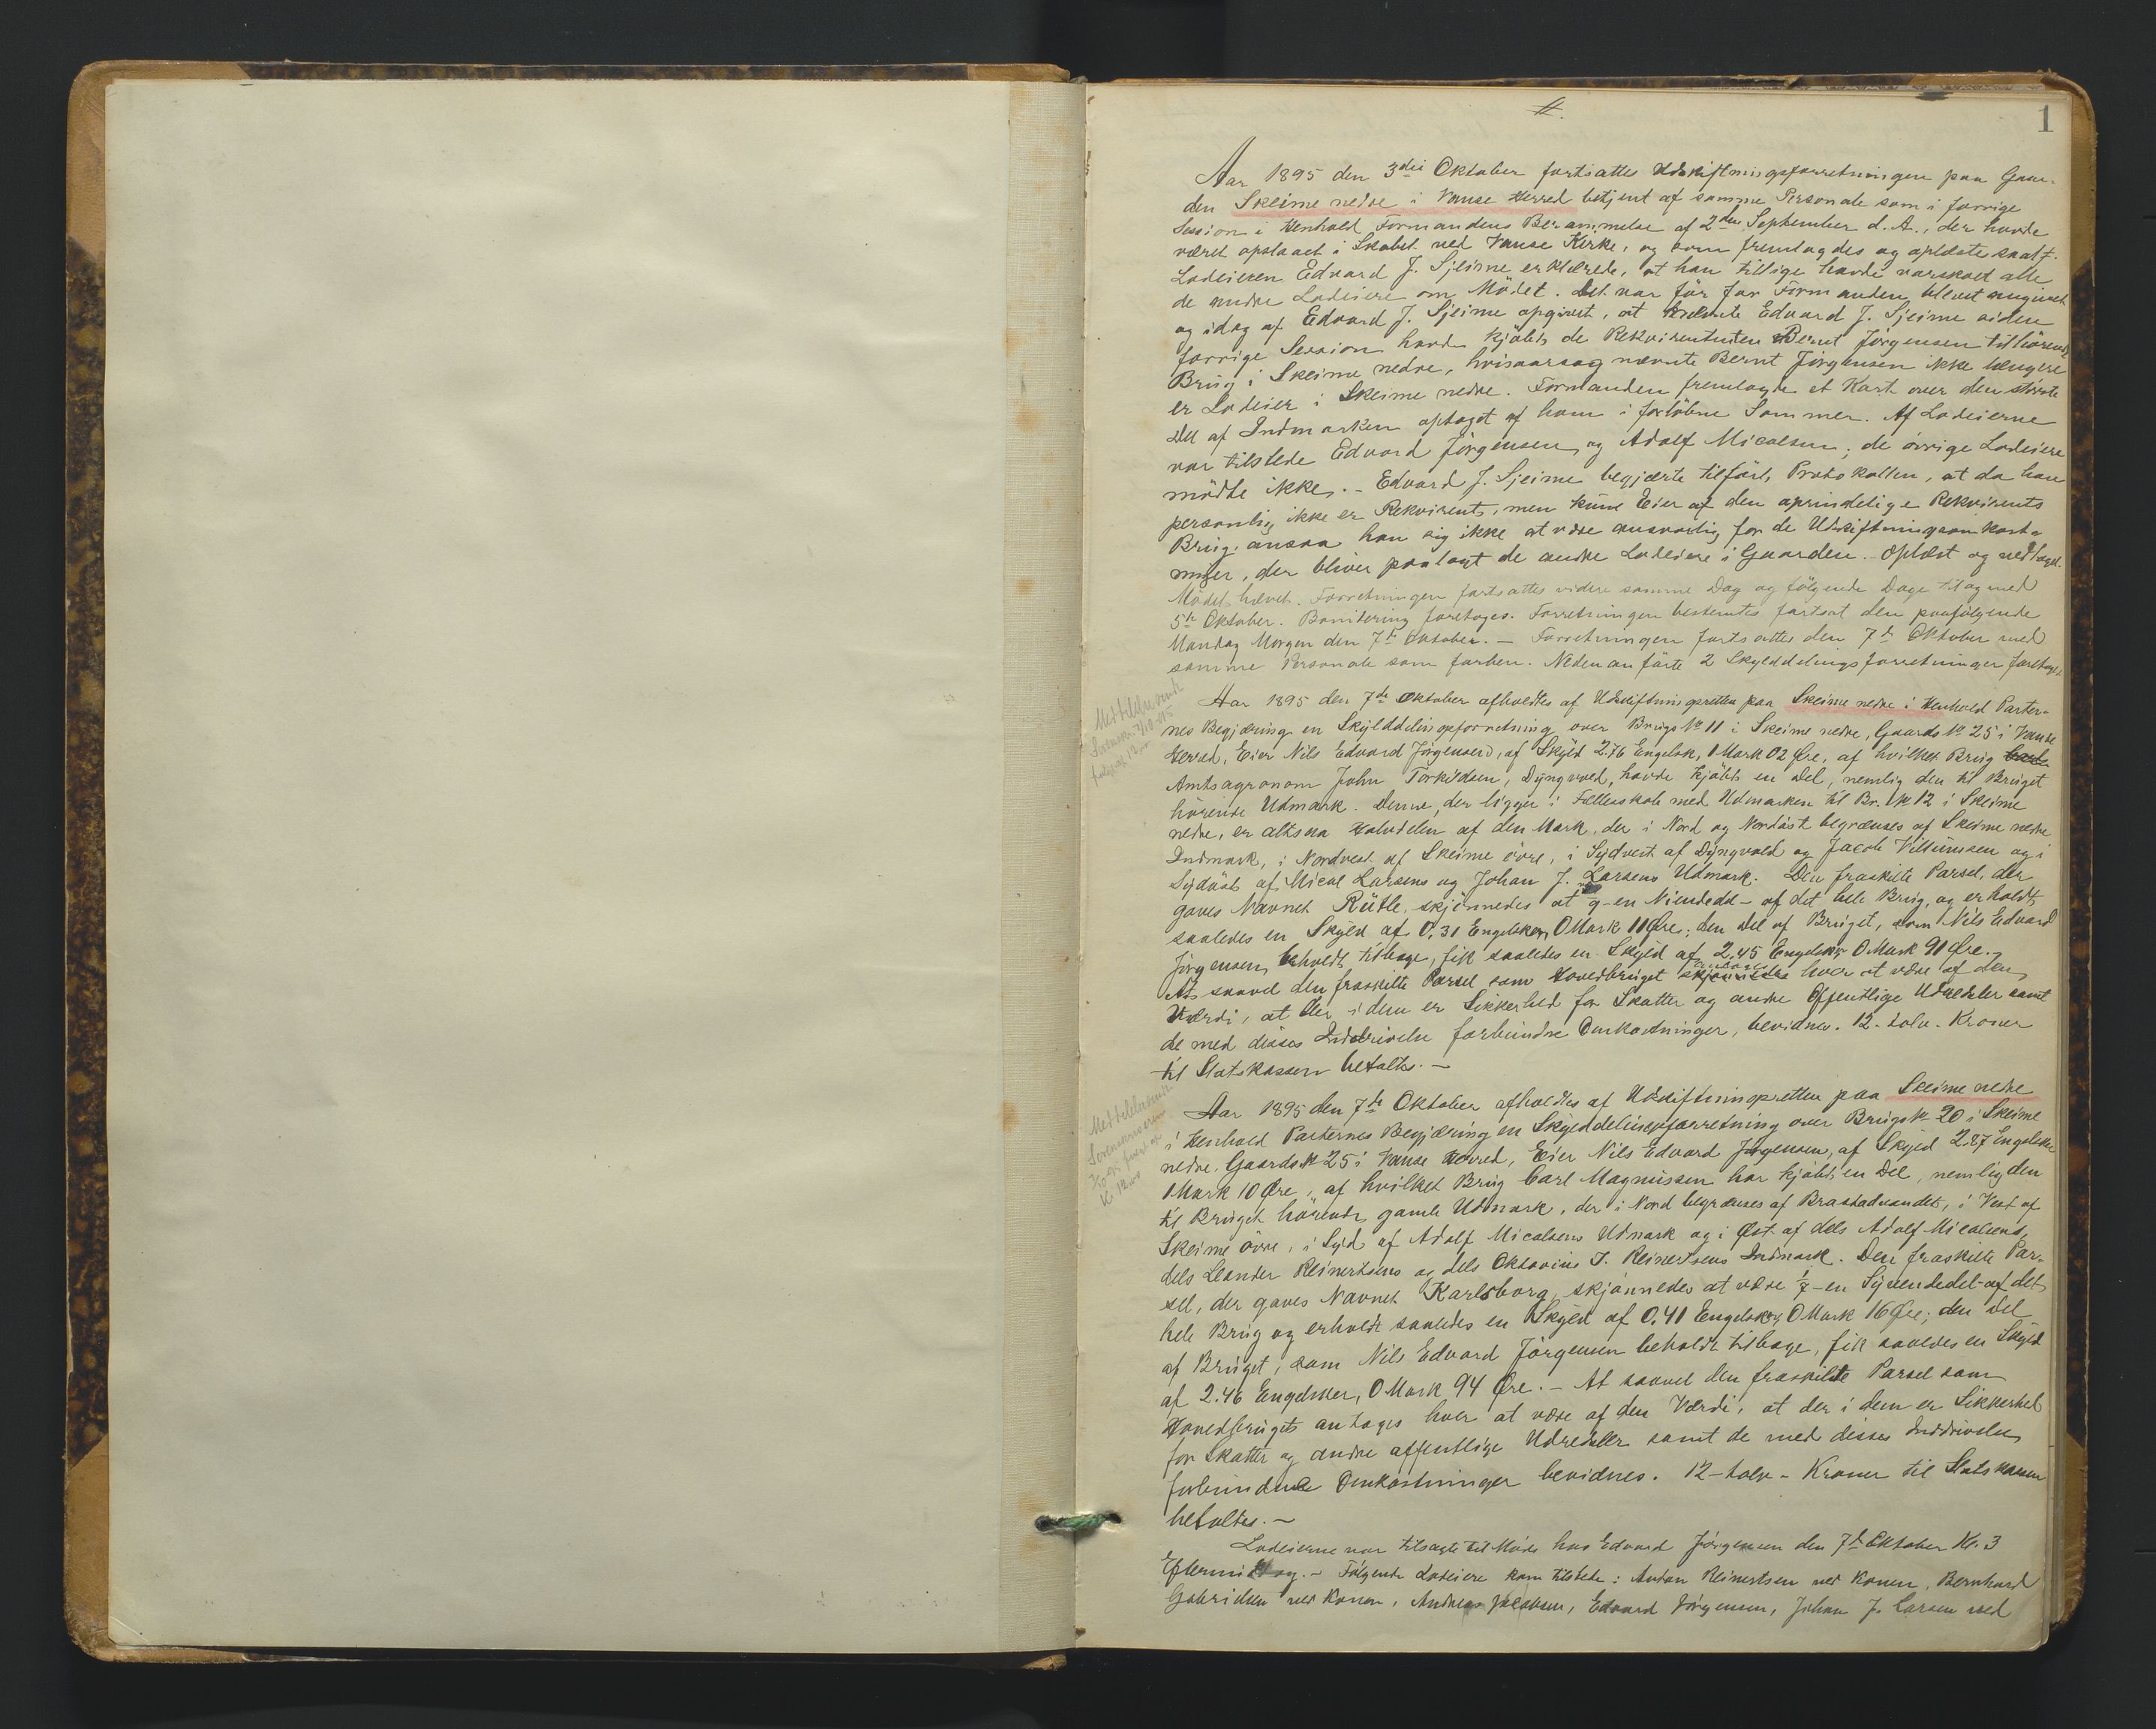 1
Aar 1895 den 3die Oktober fortsattes Udskiftningsforretningen paa Gaar-
den Skeime nedre i Vanse Herred betjent af samme Personale som i forrige
Session i Henhold Formandens Berammelse af 2den September d. A., der havde
været opslaaet i Skabet ved Vanse Kirke, og som fremlagdes og oplæstes saalf.
Lodeieren Edvard J. Sjeime erklærede, at han tillige havde varskoet alle
de andre Lodeiere om Mödet. Det var för for Formanden blevet angivet
og idag af Edvard J. Sjeime opgivet, at nævnte Edvard J. Sjeime siden
forrige Session havde kjöbt de Rekvirenten Bernt Jörgensen tilhörende
Brug i Skeime nedre, hvisaarsag nævnte Bernt Jörgensen ikke længere
er Lodeier i Skeime nedre. Formanden fremlagde et Kart over den störste
Del af Indmarken optaget af ham i forlöbne Sommer. Af Lodeierne
var tilstede Edvard Jörgensen og Adolf Micalsen; de övrige Lodeiere
mödte ikke. - Edvard J. Sjeime begjærte tilfört Protokollen, at da han
personlig ikke er Rekvirent, men kun Eier af den oprindelige Rekvirents
Brug, ansaa han sig ikke at være ansvarlig for de Udskiftningsomkost-
ninger, der bliver paalagt de andre Lodeiere i Gaarden. - Oplæst og vedtaget.
Mödet hævet. Forretningen fortsattes videre samme Dag og fölgende Dage til og med
5te Oktober. Bonitering foretoges. Forretningen bestemtes fortsat den paafölgende
Mandag Morgen den 7de Oktober. - Forretningen fortsattes den 7de Oktober med
samme Personale som forhen. Nedenanförte 2 Skylddelingsforretninger foretoges
Aar 1895 den 7de Oktober afholdtes af Udskiftningsretten paa Skeime nedre i Henhold Parter-
nes Begjæring en Skylddelingsforretning over Brugs No 11 i Skeime nedre, Gaards No 25 i Vanse
Herred, Eier Nils Edvard Jörgensen, af Skyld 2.76 Engelsk, 1 Mark 02 Öre, af hvilket Brug havde
Amtsagronom John Torkildsen, Dyngvoll, havde kjöbt en Del, nemlig den til Bruget
hörende Udmark. Denne, der ligger i Fællesskab med Udmarken til Br. No 12 i Skeime
nedre, er altsaa Halvdelen af den Mark, der i Nord og Nordöst begrænses af Skeime nedre
Indmark, i Nordvest af Skeime övre, i Sydvest af Dyngvold og Jacob Villumsen og i
Sydöst af Mical Larsens og Johan J. Larsens Udmark. Den fraskilte Parsel, der
gaves Navnet Rütle, skjönnedes at 1/9 - en Niendedel - af det hele Brug, og erholdt
saaledes en Skyld af 0,31 Engelsker, 0 Mark 11 Öre; den Del af Bruget, som Nils Edvard
Jörgensen beholdt tilbage, fik saaledes en Skyld af 2,45 Engelsker 0 Mark 91 Öre. -
At saavel den fraskilte Parsel som Hovedbruget skjönnedes antages hver at være af den
Værdi, at der i dem er Sikkerhed for Skatter og andre Offentlige Udredsler samt
de med disses Inddrivelse forbundne Omkostninger, bevidnes. 12 - tolv - Kroner
til Statskassen betaltes. -
Aar 1895 den 7de Oktober afholdtes af Udskiftningsretten paa Skeime nedre
i Henhold Parternes Begjæring en Skylddelingsforretning over Brugs No 20 i Skeime
nedre, Gaards No 25 i Vanse Herred, Eier Nils Edvard Jörgensen, af Skyld 2.87 Engelsker
1 Mark 10 Öre, af hvilket Brug Carl Magnussen har kjöbt en Del, nemlig den
til Bruget hörende gamle Udmark, der i Nord begrænses af Brastadvandet, i Vest af
Skeime övre, i Syd af Adolf Micalsens Udmark og i Öst af dels Adolf Micalsens,
dels Leander Reinertsens og dels Oktavius I. Reinertsens Indmark. Den fraskilte Par-
sel, der gaves Navnet Karlsborg, skjönnedes at være 1/7 - en Syvendedel - af det
hele Brug og erholdt saaledes en Skyld af 0,41 Engelsker, 0 Mark 16 Öre; den Del
af Bruget, som Nils Edvard Jörgensen beholdt tilbage, fik saaledes en Skyld
af 2.46 Engelsker, 0 Mark 94 Öre. - At saavel den fraskilte Parsel som
Hovedbruget antages hver at være af den Værdi, at der i dem er Sikkerhed
for Skatter og andre offentlige Udredsler samt de med disses Inddrivelse
forbundne Omkostninger bevidnes. 12 - tolv - Kroner til Statskassen
betaltes. -
Lodeierne var tilsagte til Möde hos Edvard Jörgensen den 7de Oktober Kl. 3
Eftermiddag. - Fölgende Lodeiere kom tilstede: Andon Reinertsen ved Konen, Bernhard
Gabrielsen ved Konen, Andreas Jacobsen, Edvard Jörgensen, Johan J. Larsen ved